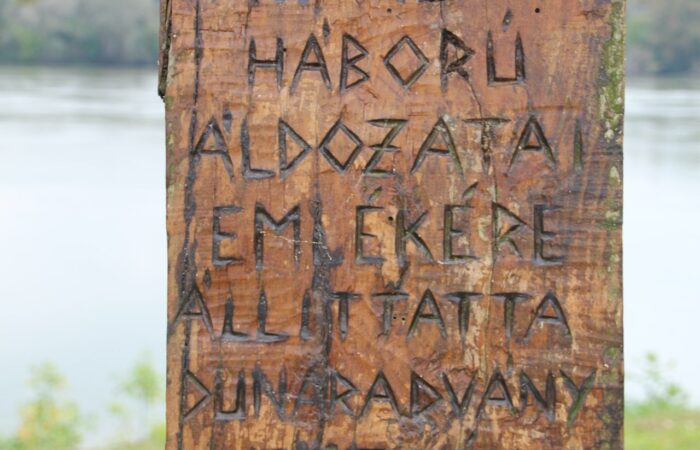 HÁBORÚ
ÁLDOZATAI
EMLÉKÉRE
ÁLLÍTTATTA
DUNARADVÁNY